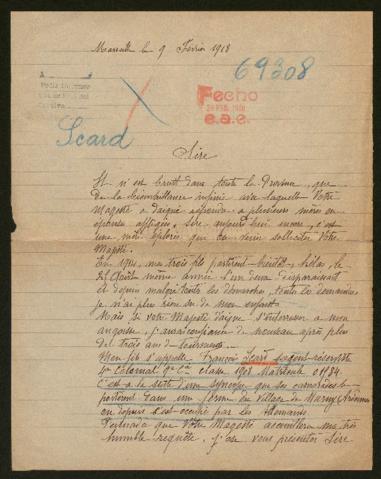 Marseille le 9 Février 1918
69308
Fecho
e.a.e.
Scard
Sire
Il n'est bruit dans toute la Provence, que
de la bienveillance infinie avec laquelle Votre
Majesté a daigné répondre a plusieurs mères ou
épouses affligées. Sire aujourd'hui encore, c'est
une mère éplorée qui ose venir solliciter Votre
Majesté.
En 1914, mes trois fils partirent hélas, le
21 Août même année l'un deux disparaissait
et depuis malgré toutes les démarches, toutes les demandes
je n'ai plus rien su de mon enfant.
Mais si votre Majesté daigne s'intéresser a mon
angoisse, j'aurai confiance de nouveau après plus
de trois ans de tourments.
Mon fils s'appelle François Scard sergent réserviste
Colonial 9e Cie classe 1908 Matricule 01184.
C'est a la suite d'une syncope que ses camarades le
portèrent dans une ferme du village de Ardennes
ou depuis c'est occupé par les Allemands
que Votre Majesté accueillera ma très
humble requête, j'ose vous présenter Sire